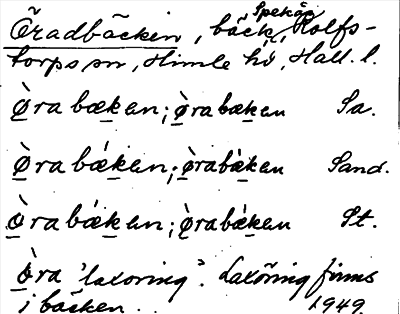 Öradbäcken, bäck, Spekäs, Rolfs-
torps sn, Himle hd, Hall. l.
ø̀rabæken; ø̀rabæken Sa.
ø̀rabǽken; ø̀rabǽken Sand.
ø̀rabǽken; ø̀rabǽken St.
ø̀ra 'laxöring'. Laxöring finns
i bäcken. 1949